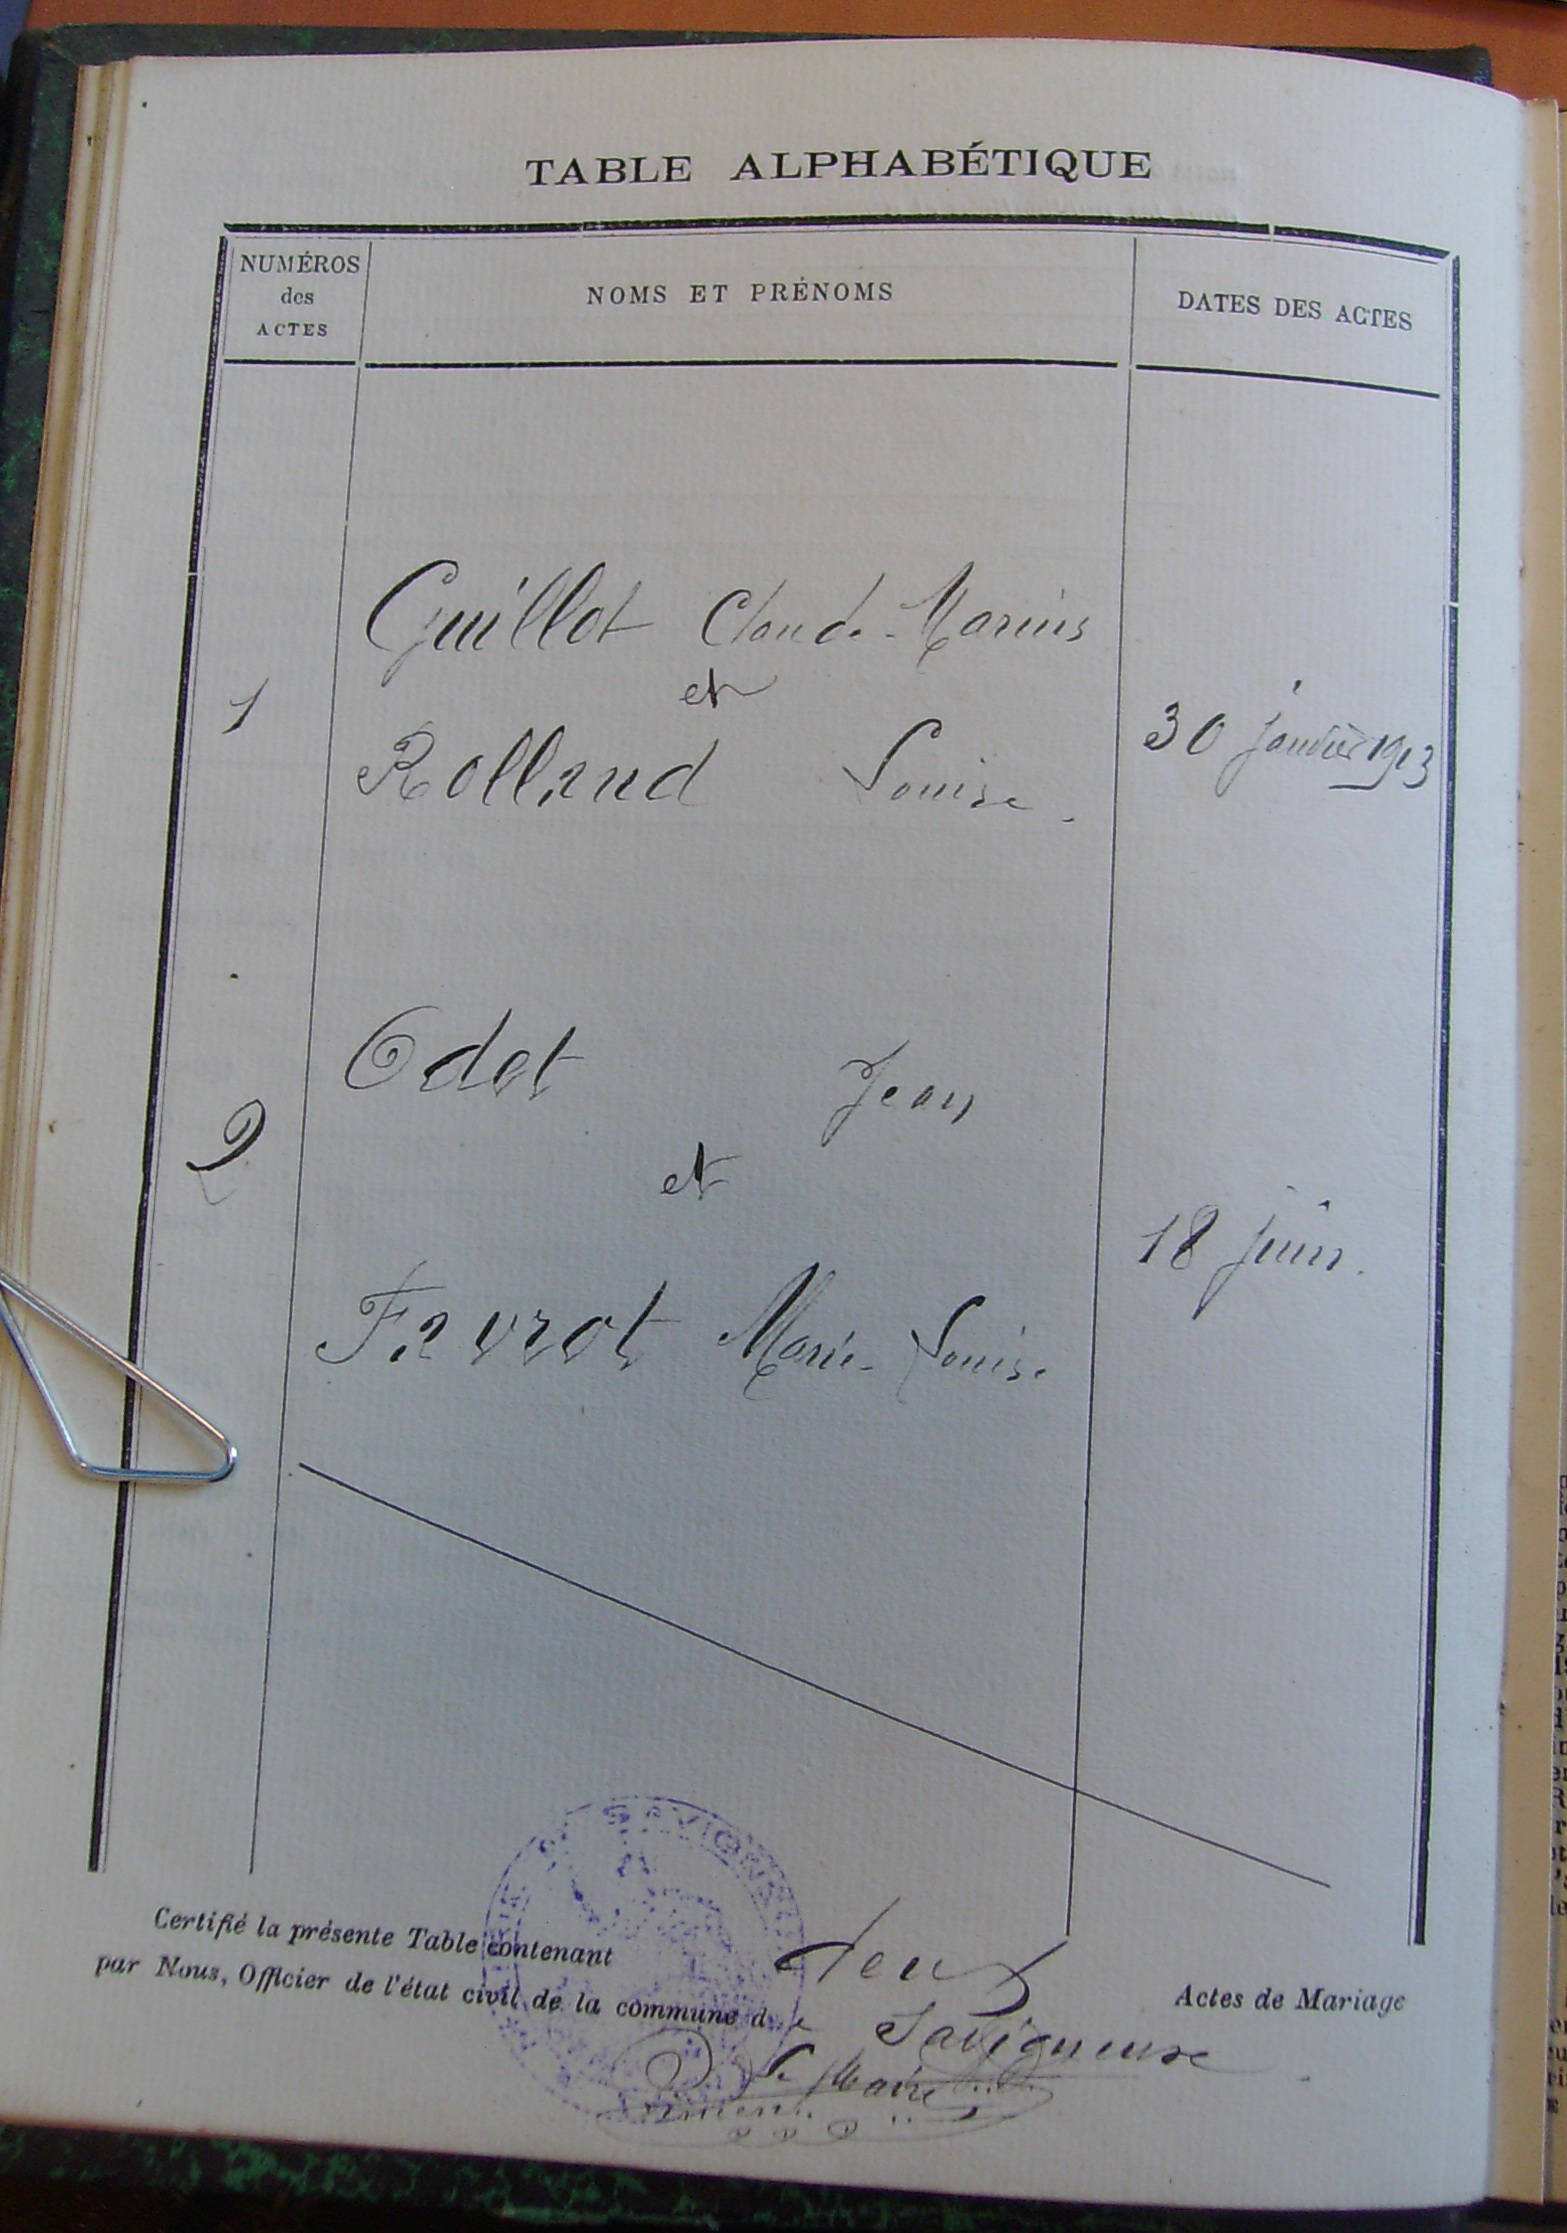 TABLE ALPHABÉTIQUE
NUMÉROS
des
ACTES
NOMS ET PRÉNOMS
DATES DES ACTES
Guillot Claude-Marius
et
1
30 janvier 1913
Rolland Louise.
Odet Jean
2
et
18 juin.
Favrot Marie-Louise
Certifié la présente Table contenant deux Actes de Mariage
par Nous, Officier de l'état civil de la commune de Savigneux
Le Maire